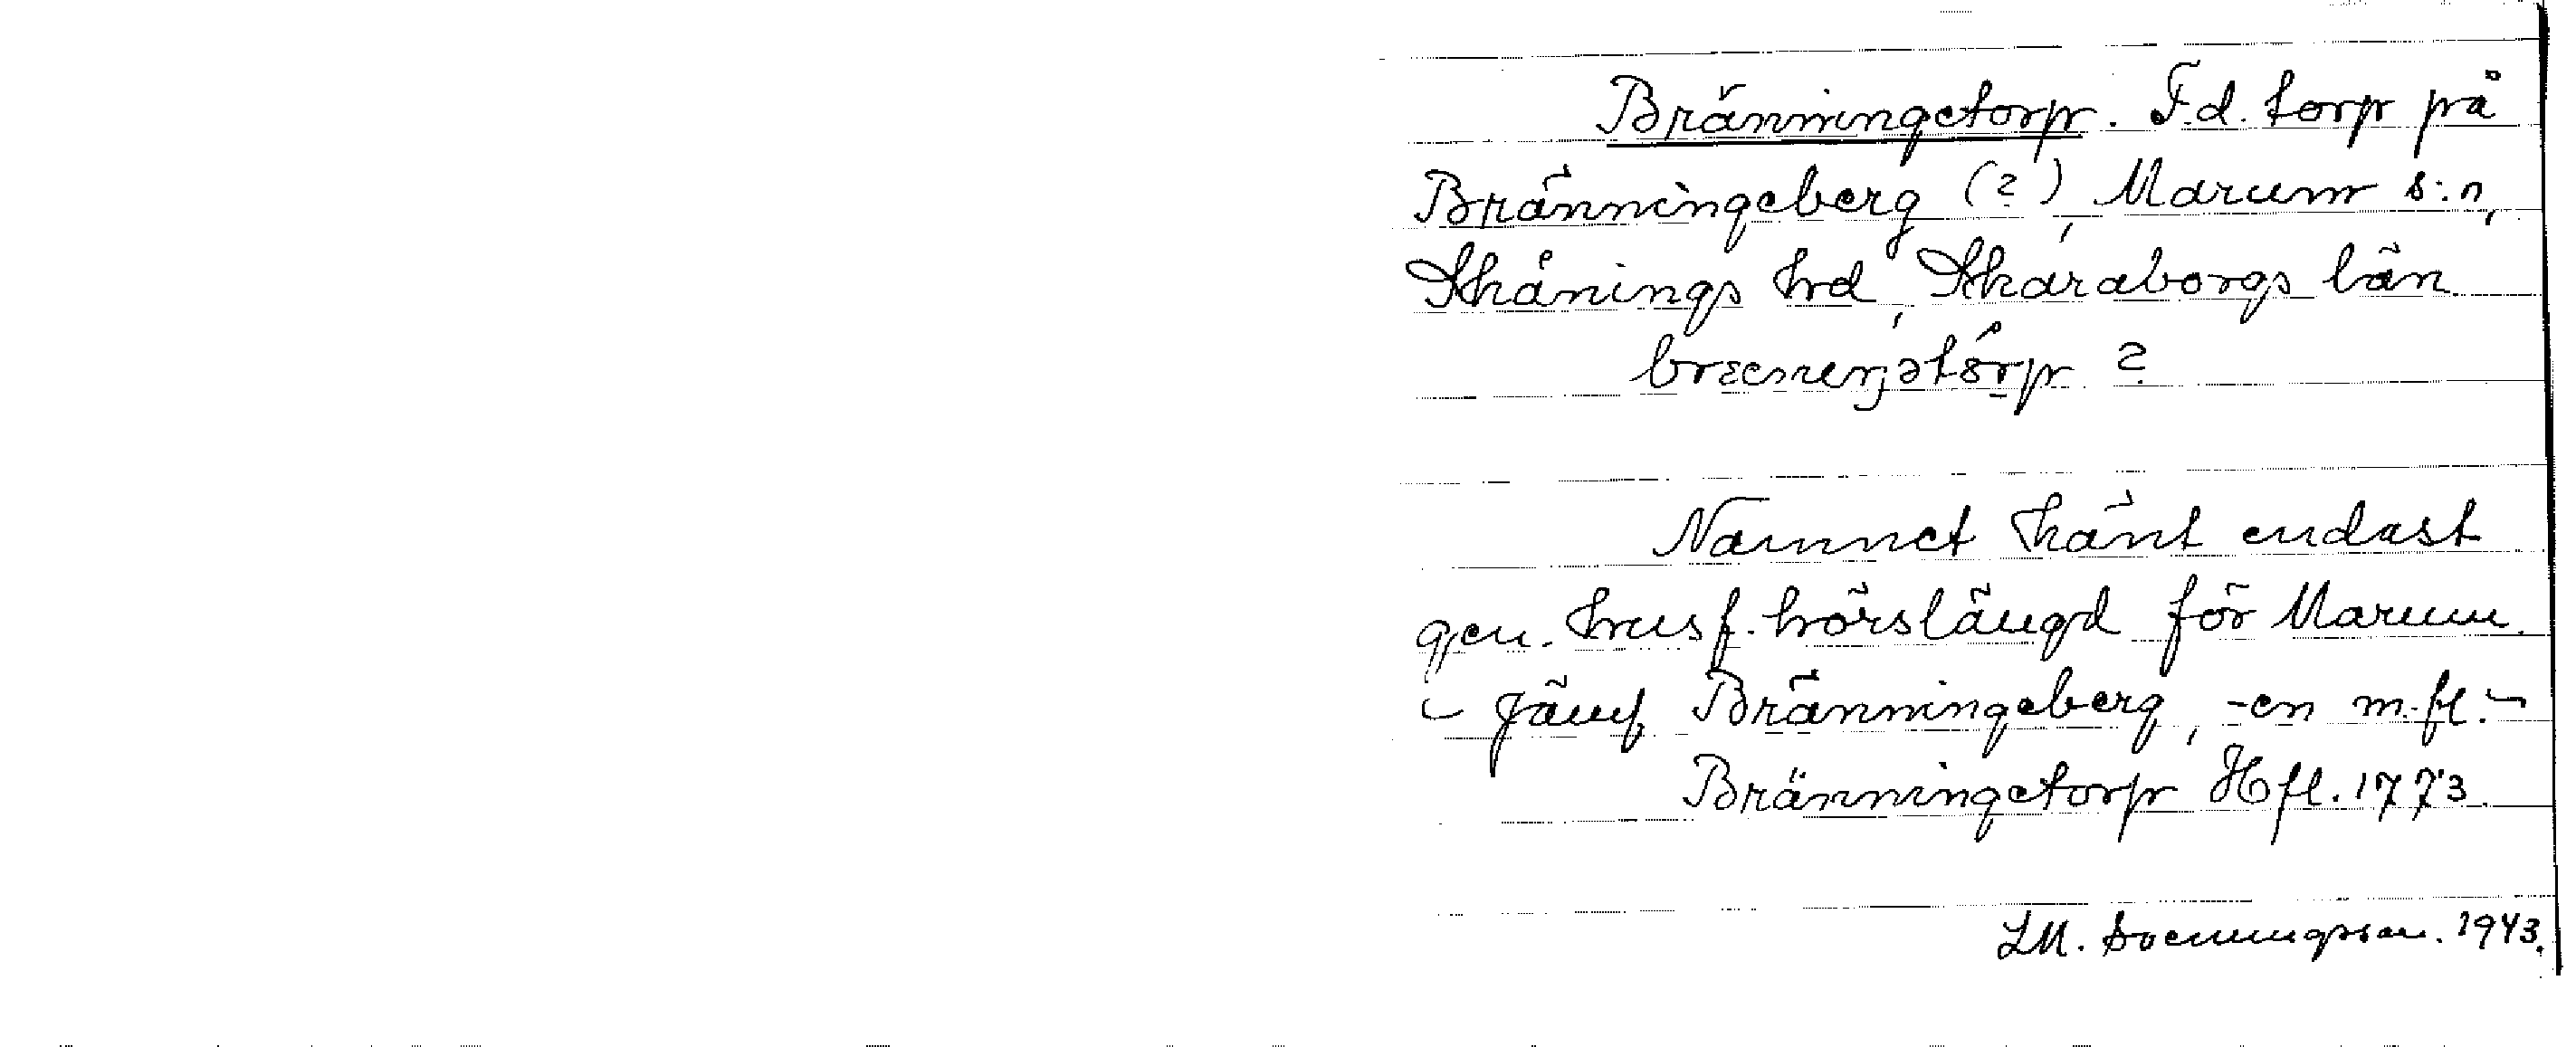 Bränningetorp. F.d. torp på
Bränningeberg (?), Marum s:n,
Skånings hd, Skaraborgs län
?
Namnet känt endast
gen. husf.hörslängd för Marum.
- Jämf Bränningeberg, -en m.fl. -
Bränningetorp Hfl. 1773.
LM. Svenungsson. 1943.